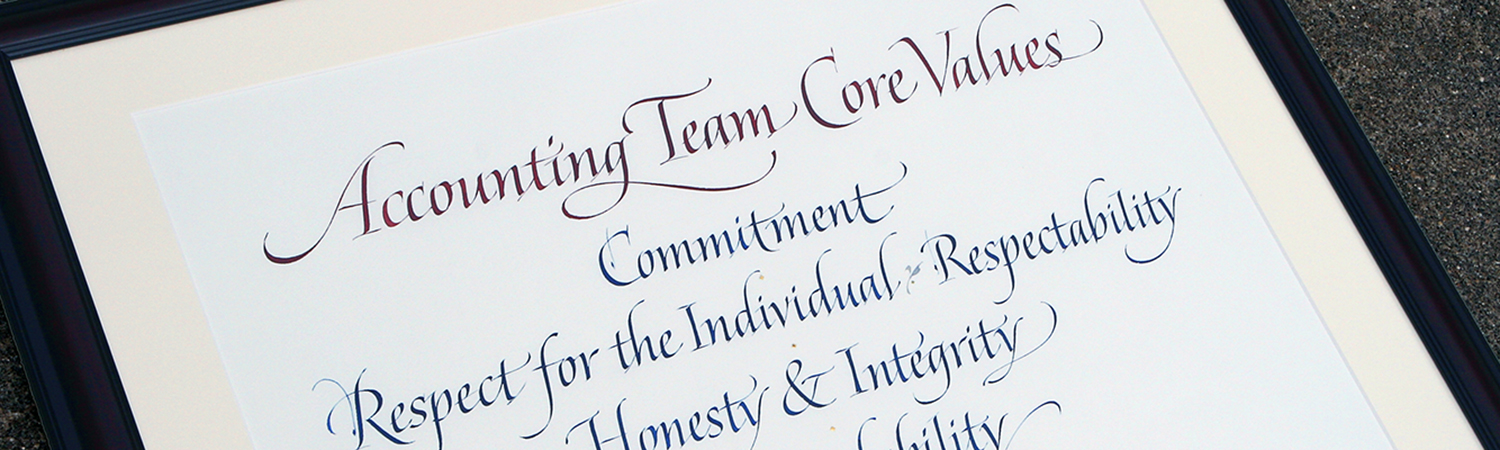 Accounting Team Core Values
Commitment
Respect for the Individual Respectability
Honesty & Integrity